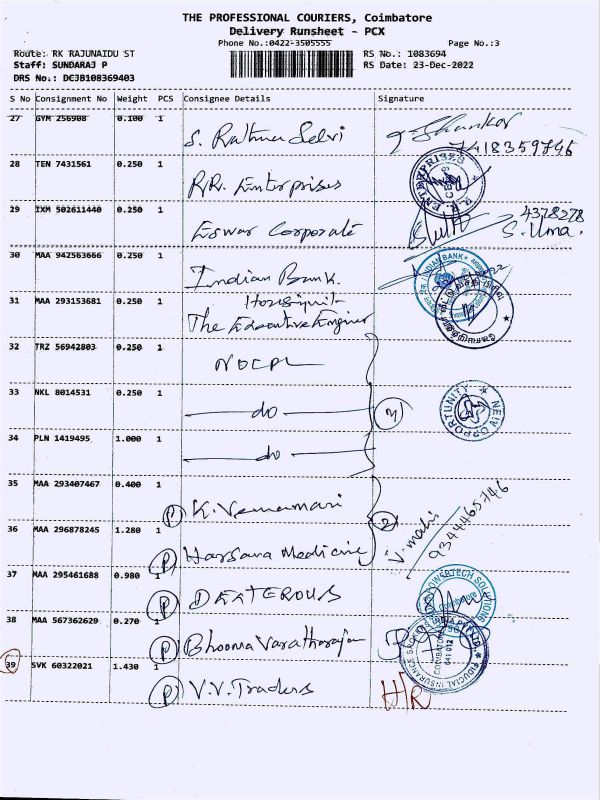 THE PROFESSIONAL COURIERS, Coimbatore
Delivery Runsheet - PCX
Phone No.:0422-3505555 Page No.:3
Route: RK RAJUNAIDU ST RS No.: 1083694
Staff: SUNDARAJ P RS Date: 23-Dec-2022
DRS No.: DCJB108369403
S No Consignment No Weight PCS Consignee Details Signature
27 GYM 256908 0.100 1 S. Rathna Selvi Shankar
7418359746
28 TEN 7431561 0.250 1 R.R. Enterprises
29 IXM 502611440 0.250 1 Eswar Corporate 4378278
S. Uma.
30 MAA 942563666 0.250 1 Indian Bank.
31 MAA 293153681 0.250 1 The Executive Engineer
32 TRZ 56942803 0.250 1 NOCPL
33 NKL 8014531 0.250 1 do 3 NEW OPPORTUNITY
34 PLN 1419495 1.000 1 do
35 MAA 293407467 0.400 1 P K. Vanamari 2 V. mahi
9344465746
36 MAA 296878245 1.280 1 P Harsana Medicine
37 MAA 295461688 0.980 1 P DEXTEROUS
38 MAA 567362629 0.270 1 P Bhooma Varatharajan
39 SVK 60322021 1.430 1 P V.V. Traders H/R